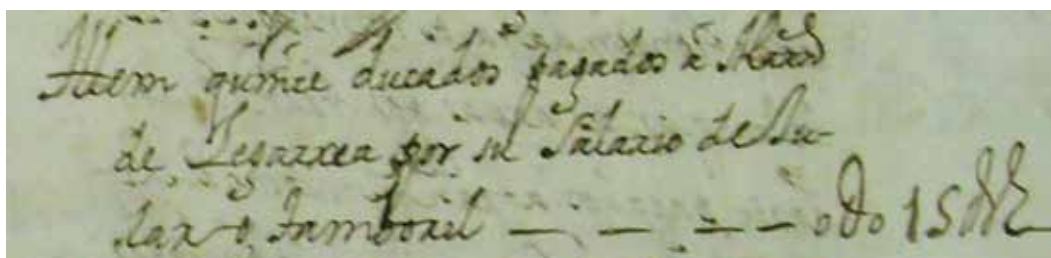 Ittem quince ducados pagados à
de Legarrea por su Salario de Ju-
lar o tamboril — — — — 15